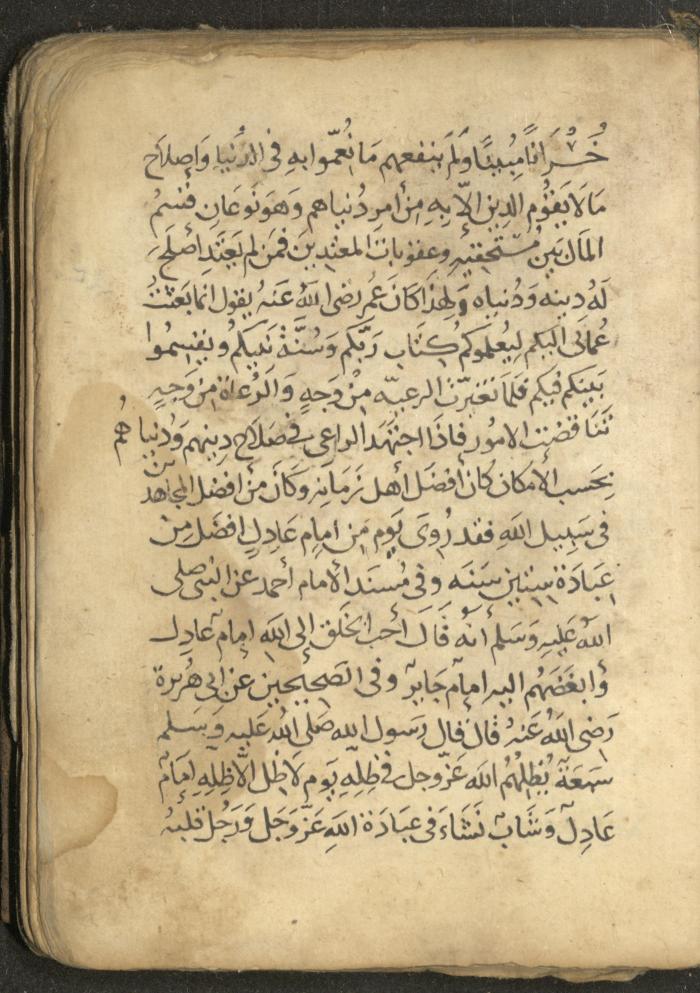 خُسْرَانًا مُبِينًا وَلَمْ ينفعهم مَا نُعِّمُوا بهِ فِى الدُّنيا وَإصلاح
مَا لَا يَقُوْم الدِين إلَّا بِهِ مِنْ أمر دُنياهم وَهوَ نَوعَانِ قسْمُ
المَال بَين مُسْتَحِقيهِ وعقوبات المعتدِينَ فمَن لم يَعْتَدِ أصلح
لَهُ دِينه وَدُنياه وَلهذَا كَانَ عُمر رضى اللهُ عَنهُ يقول انما بَعثتُ
عُمالى اليكم لِيُعلموكم كُتَاب رَبَّكم وَسُنَّة نَبيكم وَيقسِمُوا
بَينكم فيكم فلمَا تغيرّت الرعيّه مِنْ وَجهٍ وَالرُعاة مِن وَجهٍ
تَنَاقضت الامُور فاِذَا اجتَهَد الراعى فى صَلَاح دِينهم وَدُنياهُم
بحَسب الأمكان كانَ أفضَل أهل زَمَانِهِ وَكَانَ مِنْ أفضل المجاهدين
فى سَبِيل اللهِ فقد رُوىَ يَوم مِن اِمام عَادِلٍ افضَل مِنْ
عِبَادَة ستين سَنَه وفى مُسْنَد الأمام أحمد عَن النبى صلى
اللهُ عَليهِ وَسَلم أنهُ قَالَ أحب الخَلق إلى اللهِ اِمامٌ عَادِل
وَابغضَهُم اليهِ اِمامٌ جَايرٌ وفى الصَحِيحين عَن ابى هُريرة
رَضى اللهُ عَنهُ قَالَ قال رَسول الله صَلى اللهُ عَليهِ وَسَلم
سَبعَة يُظِلهُمُ اللهَ عَزّ وجل فى ظِلِهِ يَوم لَا ظِل الَّا ظِلِهِ اِمَامٌ
عَادِلٌ وَشَابٌ نَشَاءَ فى عبَادَة اللهِ عَزَّ وَجَل وَرَجُل قلبُه